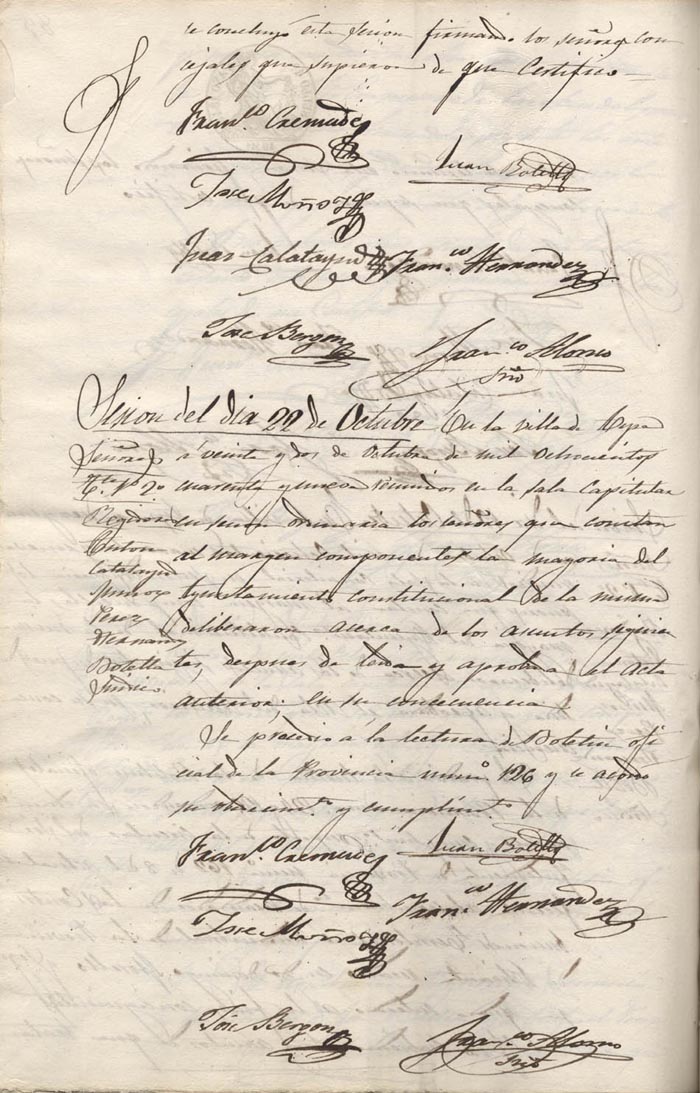 se concluyó esta sesion firmando los señores con
cejales que supieron de que Certifico
Fran.co Cremades
Juan Botella
Jose Muñoz
Juan Calatayud
Fran.co Hernandez
Jose Bergon
Fran.co Alonso
Srio
Sesion del dia 22 de Octubre En la villa de
Señores
á veinte y dos de Octubre de mil Ochocientos
2º
cuarenta y nueve reunidos en la sala Capitular
Regidores
en sesion ordinaria los señores que constan
al margen componentes la mayoria del
Calatayud
Muñoz
Ayuntamiento constitucional de la misma
Perez
Hernandz
deliberaron acerca de los asuntos siguien
Botella
tes, despues de leida y aprobada el Acta
Sindico
anterior; en su consecuencia
Se procedio á la lectura de Boletin ofi
cial de la Provincia num.o 126 y se acordo
su y cumplim.to
Fran.co Cremades
Juan Botella
Fran.co Hernandez
Jose Muñoz
Jose Bergon
Fran.co Alonso
Srio